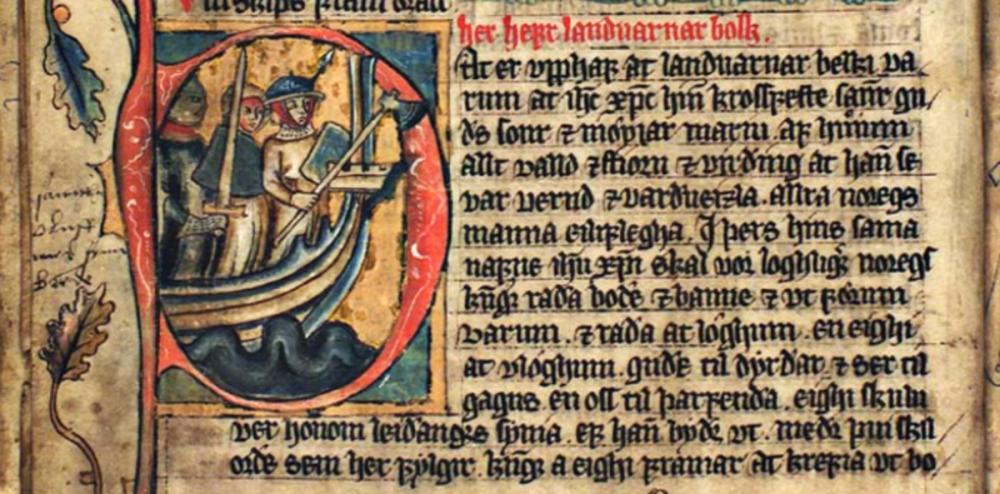 her hefr landuarnar bolk.
Þat er vpphaf at landuarnar belki va
rum at ihc xpc hin krossfeste sañr gu
ds sonr ⁊ móyiar mariu. af hánum
allt valld ⁊stiorn ⁊ virding at hañ se
var vernd ⁊varduerzla. allra noregs
manna eilifleghа. J þers hins sama
nafne ihu xpi skal vor loghligr noregs
kngr rada bode ⁊banne ⁊ vt forum
varum. ⁊ rada at lóghum. en eighi
at vlóghum. gude til dyrdar ⁊ ser til
gagns en oss til þarfenda. eighi skulu
ver honom leidangrs synia. ef hañ bydr vt. medr þui skil
orde sem her fylgir. kngr a eighi framar at krefia vt bo